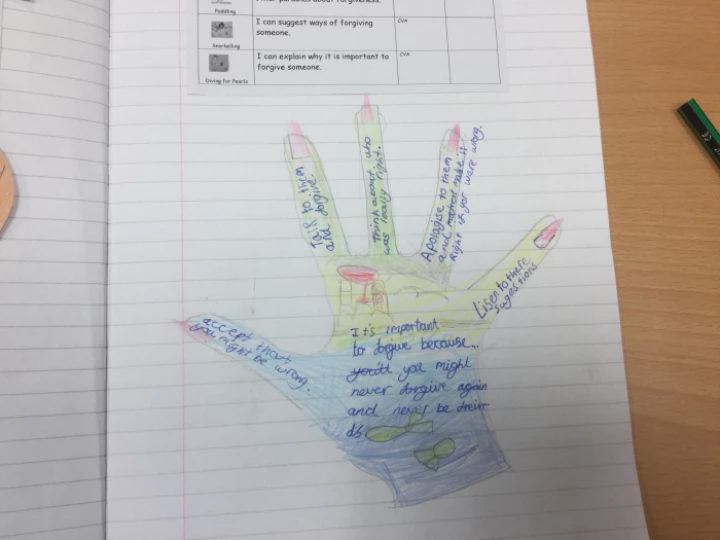 Other parables about forgiveness.
Paddling
I can suggest ways of forgiving
someone.
Snorkelling
I can explain why it is important to
forgive someone.
Diving for Pearls
Talk to them
and forgive.
Think about who
was really right.
Apologise to them
and make it
Right if you were wrong.
Lisen to there
suggestions
accept that
you might be wrong.
It's important
to forgive because...
you might
never forgive again
and never be